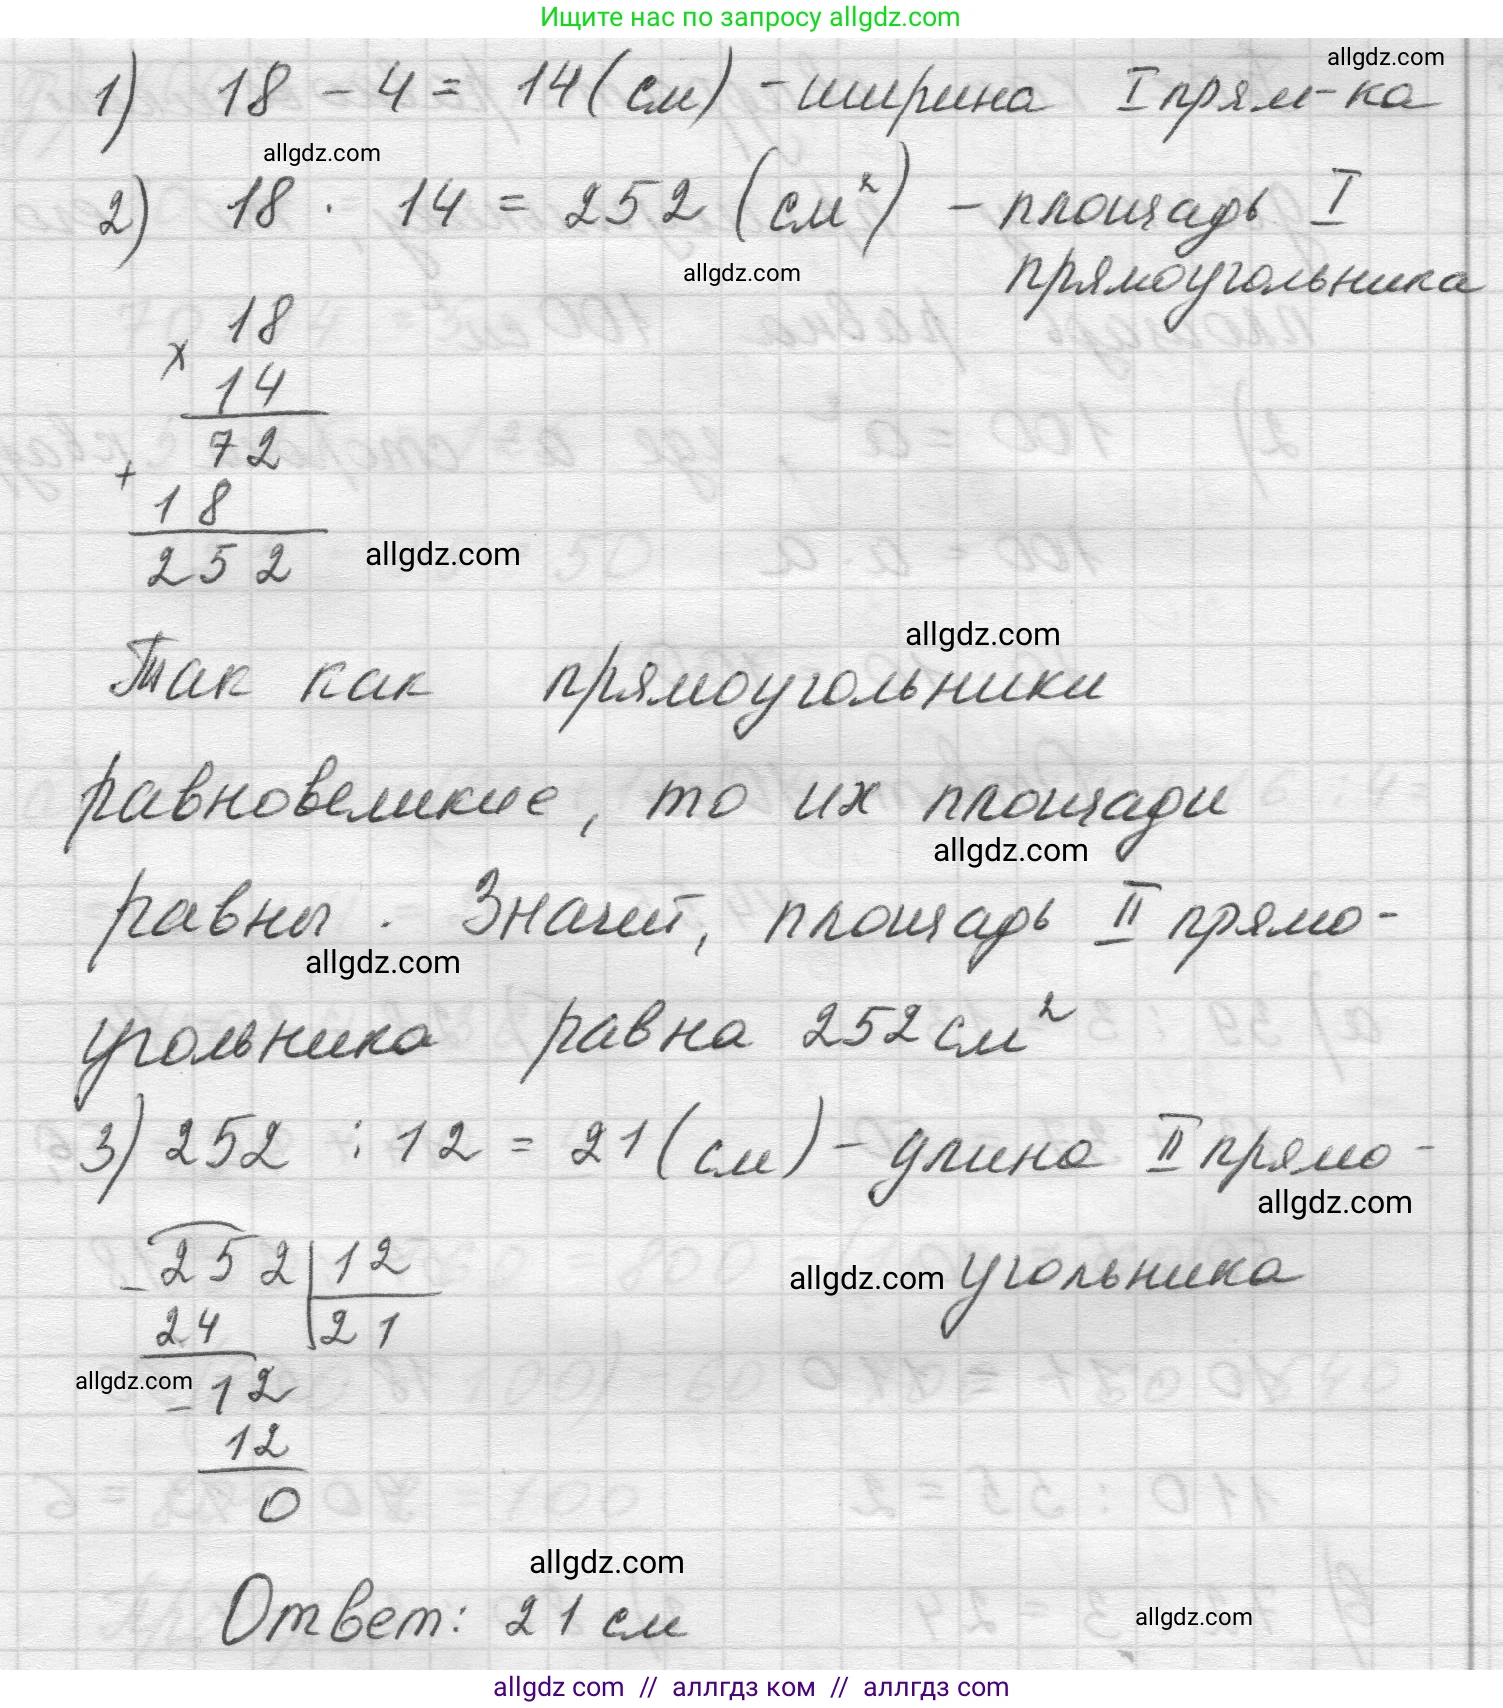 Ищите нас по запросу allgdz.com
allgdz.com
1) 18 - 4 = 14 (см) - ширина I прям-ка
allgdz.com
2) 18 · 14 = 252 (см²) - площадь I
allgdz.com
прямоугольника
18
x
14
72
+
18
252
allgdz.com
allgdz.com
Так как прямоугольники
равновеликие, то их площади
allgdz.com
равны. Значит, площадь II прямо-
allgdz.com
угольника равна 252 см²
3) 252 : 12 = 21 (см) - длина II прямо-
allgdz.com
угольника
allgdz.com
- 252 | 12
24 | 21
allgdz.com
- 12
12
0
allgdz.com
Ответ: 21 см
allgdz.com
allgdz com // аллгдз ком // аллгдз com